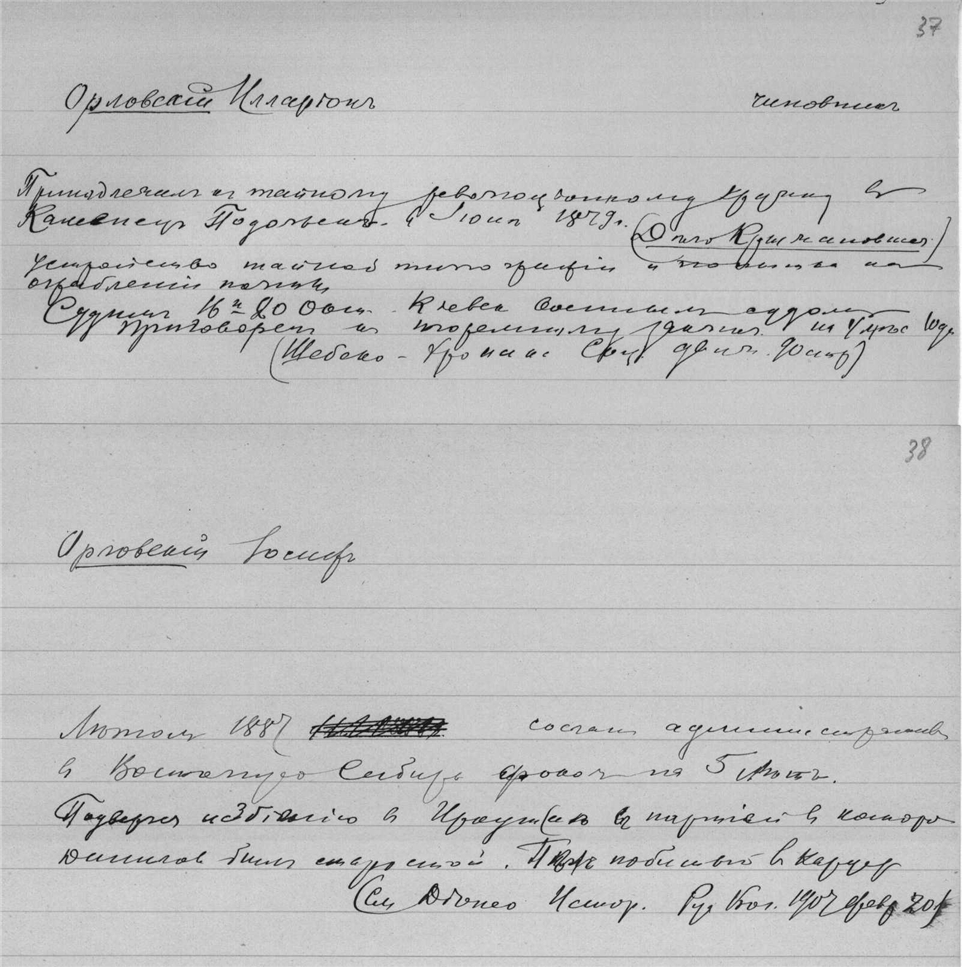 37
Орловский Илларіонъ чиновникъ
Принадлежалъ къ тайному революціонному кружку въ
Каменецъ Подольскѣ въ Іюнѣ 1879 г.
(Дѣло Крыжановскаго)
устройство тайной типографіи и попытка на
ограбленіи почты
Судился 16го 80 Кіевск военнымъ судомъ
приговоренъ къ тюремному заключ. на 4 мѣс
(Шебеко - Хроника Соц движ. 90 стр)
38
Орловскій Іосифъ
1887 сосланъ административно
въ Восточную Сибирь срокомъ на 5 лѣтъ.
Подвергся избіенію в Иркутскѣ въ партіей в которой
былъ старостой. побитый в карцер
(См Истор. Рус 1907 февр 20)